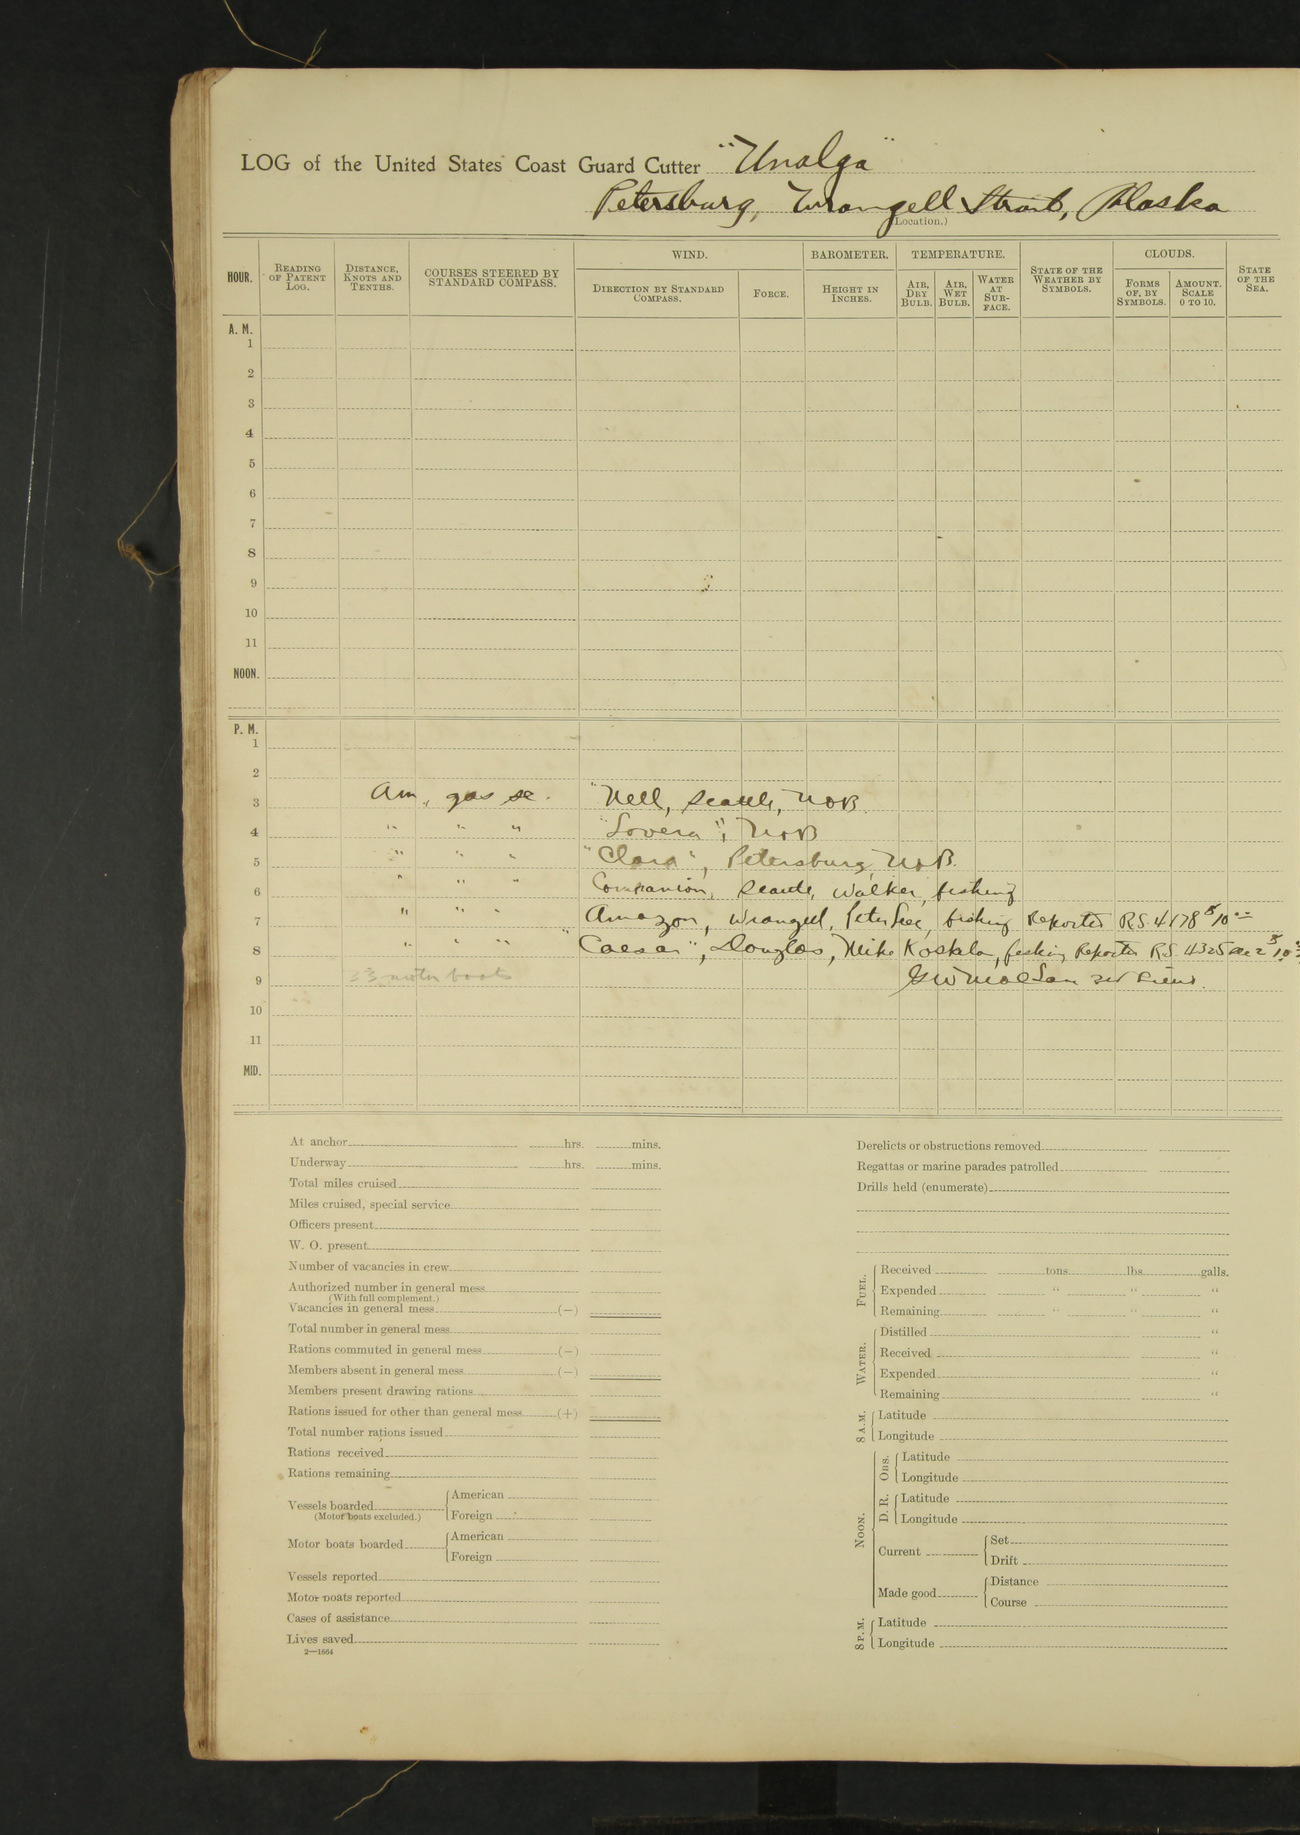 LOG of the United States Coast Guard Cutter "Unalga"
Petersburg, Wrangell Strait, Alaska
(Location.)
HOUR.
READING OF PATENT LOG.
DISTANCE, KNOTS AND TENTHS.
COURSES STEERED BY STANDARD COMPASS.
WIND.
DIRECTION BY STANDARD COMPASS.
FORCE.
BAROMETER.
HEIGHT IN INCHES.
TEMPERATURE.
AIR, DRY BULB.
AIR, WET BULB.
WATER AT SURFACE.
STATE OF THE WEATHER BY SYMBOLS.
CLOUDS.
FORMS OF, BY SYMBOLS.
AMOUNT. SCALE 0 TO 10.
STATE OF THE SEA.
A. M.
1
2
3
4
5
6
7
8
9
10
11
NOON.
P. M.
1
2
3 Am. gas sc. "Nell, Seattle, NOB.
4 " " " "Lovera", NOB
5 " " " "Clara", Petersburg, NOB.
6 " " " Companion, Seattle, Walker, fishing
7 " " " Amazon, Wrangell, Peter Lee, fishing Reported RS 4178
8 " " " "Caesar", Douglas, Mike Koskela, fishing Reported RS 4325
9 33 motor boats
10
11
MID.
At anchor hrs. mins.
Underway hrs. mins.
Total miles cruised
Miles cruised, special service
Officers present
W. O. present
Number of vacancies in crew
Authorized number in general mess
(With full complement.)
Vacancies in general mess (−)
Total number in general mess
Rations commuted in general mess (−)
Members absent in general mess (−)
Members present drawing rations
Rations issued for other than general mess (+)
Total number rations issued
Rations received
Rations remaining
Vessels boarded
(Motor boats excluded.)
American
Foreign
Motor boats boarded
American
Foreign
Vessels reported
Motor boats reported
Cases of assistance
Lives saved
2—1664
Derelicts or obstructions removed
Regattas or marine parades patrolled
Drills held (enumerate)
FUEL.
Received tons lbs. galls.
Expended " " "
Remaining " " "
WATER.
Distilled "
Received "
Expended "
Remaining "
8 A.M.
Latitude
Longitude
NOON.
OBS.
Latitude
Longitude
D. R.
Latitude
Longitude
Current
Set
Drift
Made good
Distance
Course
8 P.M.
Latitude
Longitude